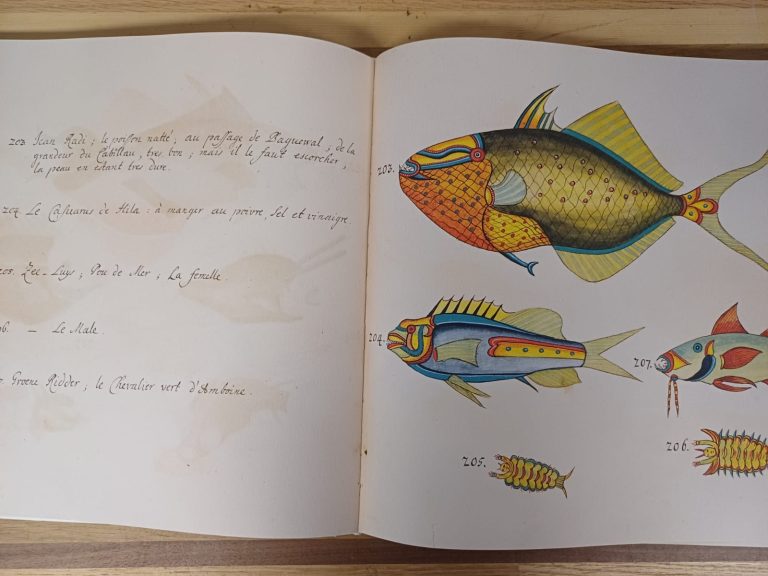 203. Jean Radi ; le poisson natté ; au passage de Baguewal ; de la
grandeur du Cabillau, tres bon ; mais il le faut escorcher ;
la peau en estant tres dure.
204. Le Casuarus de Hila : à manger au poivre, Sel et vinaigre.
205. Zee-Luys ; Pou de Mer ; La femelle.
06. — Le Male.
7. Groene Ridder ; le Chevalier vert d'Amboine.
203.
204.
207.
205.
206.